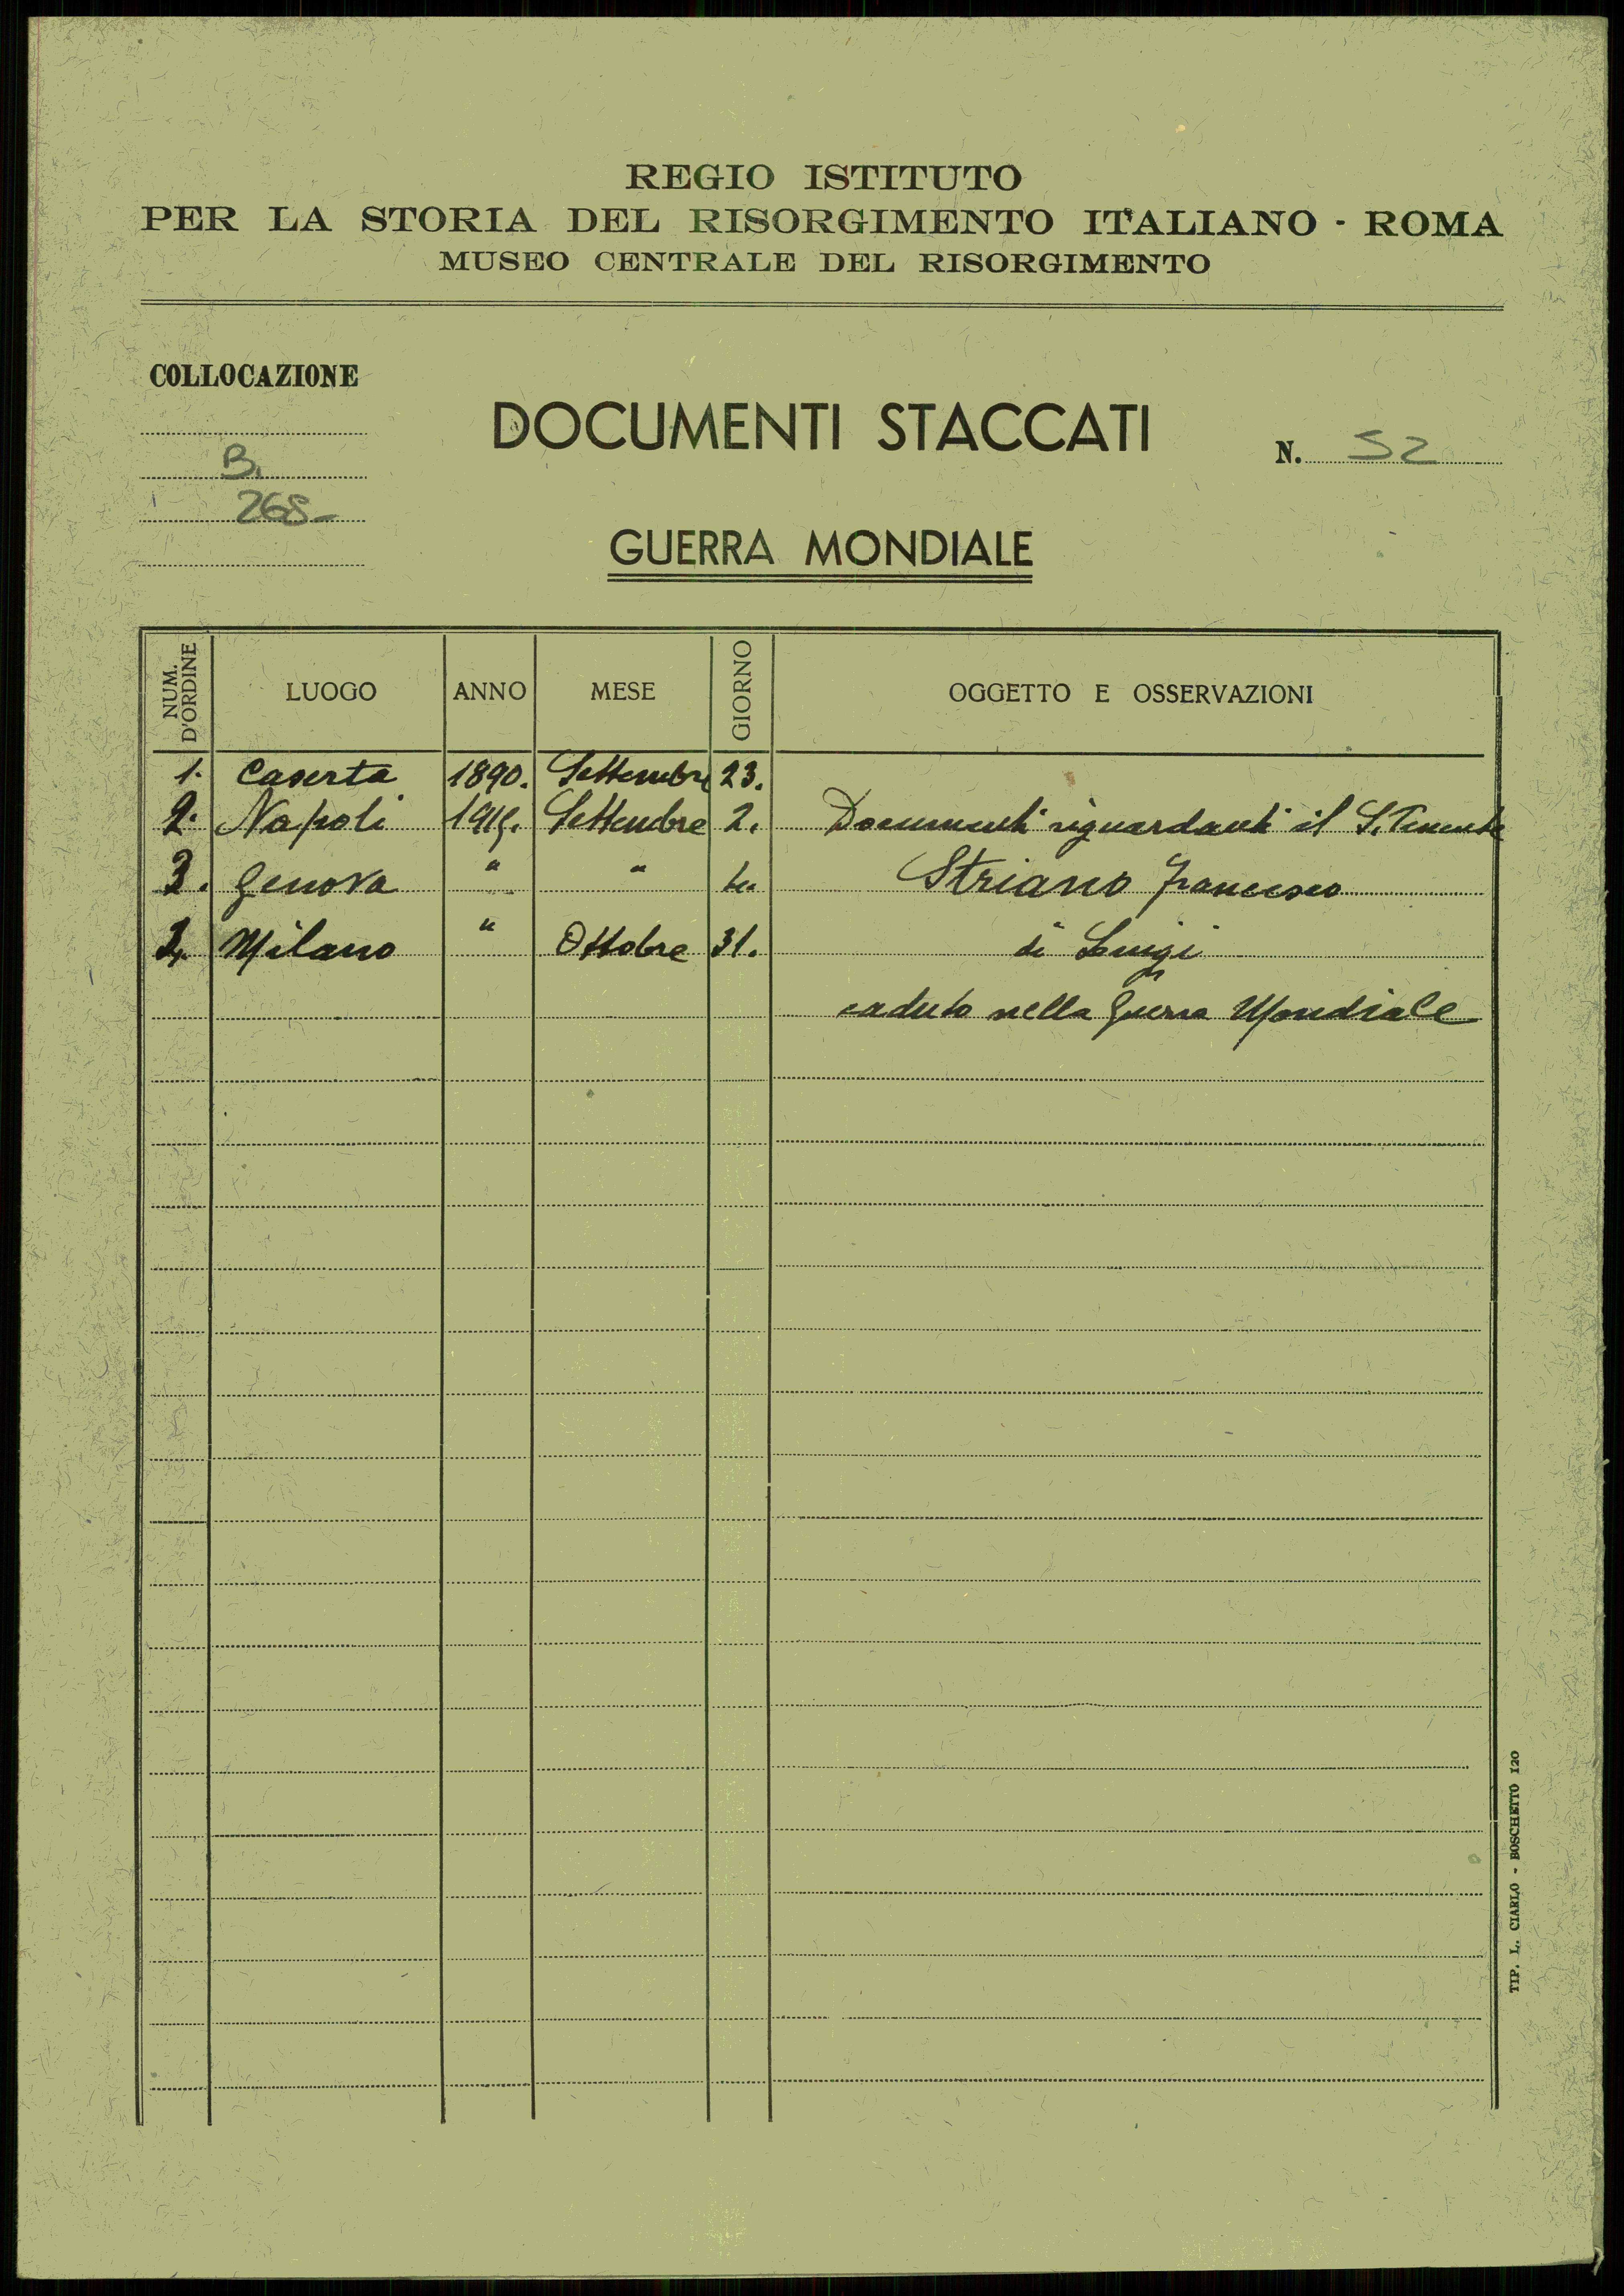 REGIO ISTITUTO
PER LA STORIA DEL RISORGIMENTO ITALIANO - ROMA
MUSEO CENTRALE DEL RISORGIMENTO
COLLOCAZIONE
B.
268-
DOCUMENTI STACCATI
N. 52
GUERRA MONDIALE
NUM. D'ORDINE LUOGO ANNO MESE GIORNO OGGETTO E OSSERVAZIONI
1. Caserta 1890. Settembre 23.
2. Napoli 1915. Settembre 2. Documenti riguardanti il S. Tenente
3. Genova " " Striano Francesco
4. Milano " Ottobre 31. di Luigi
caduto nella Guerra Mondiale
TIP. L. CIARLO - BOSCHETTO 120